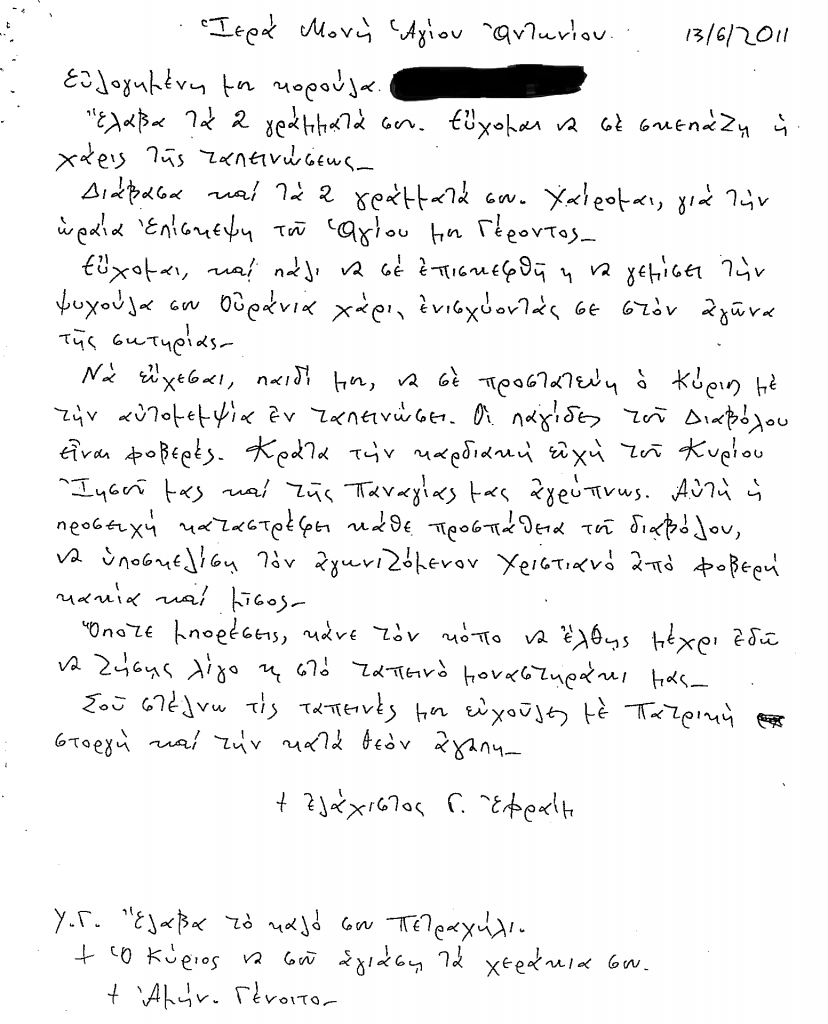 Ἱερά Μονή Ἁγίου Ἀντωνίου. 13/6/2011
Εὐλογημένη μου κορούλα
Ἔλαβα τά 2 γράμματά σου. Εὔχομαι νά σέ σκεπάζη ἡ
χάρις τῆς ταπεινώσεως_
Διάβασα καί τά 2 γράμματά σου. Χαίρομαι, γιά τήν
ὡραία ἐπίσκεψη τοῦ Ἁγίου μου Γέροντος_
Εὔχομαι, καί πάλι νά σέ ἐπισκεφθῆ κ νά γεμίσει τήν
ψυχούλα σου Οὐράνια χάρι, ἐνισχύοντάς σε στόν ἀγῶνα
τῆς σωτηρίας_
Νά εὔχεσαι, παιδί μου, νά σέ προστατεύη ὁ Κύριος μέ
τήν αὐτομεμψία ἐν ταπεινώσει. Οἱ παγίδες τοῦ Διαβόλου
εἶναι φοβερές. Κράτα τήν καρδιακή εὐχή τοῦ Κυρίου
Ἰησοῦ μας καί τῆς Παναγίας μας ἀγρύπνως. Αὐτή ἡ
προσευχή καταστρέφει κάθε προσπάθεια τοῦ διαβόλου,
νά ὑποσκελίση τόν ἀγωνιζόμενον Χριστιανό ἀπό φοβερή
κακία καί μῖσος_
Ὅποτε μπορέσεις, κάνε τόν κόπο νά ἔλθης μέχρι ἐδῶ
νά ζήσης λίγο κ στό ταπεινό μοναστηράκι μας_
Σοῦ στέλνω τίς ταπεινές μου εὐχοῦλες μέ Πατρική
στοργή καί τήν κατά Θεόν ἀγάπη_
† Ἐλάχιστος Γ. Ἐφραίμ
Υ.Γ. Ἔλαβα τό καλό σου πετραχήλι.
† Ὁ Κύριος νά σοῦ ἁγιάση τά χεράκια σου.
† Ἀμήν. Γένοιτο_